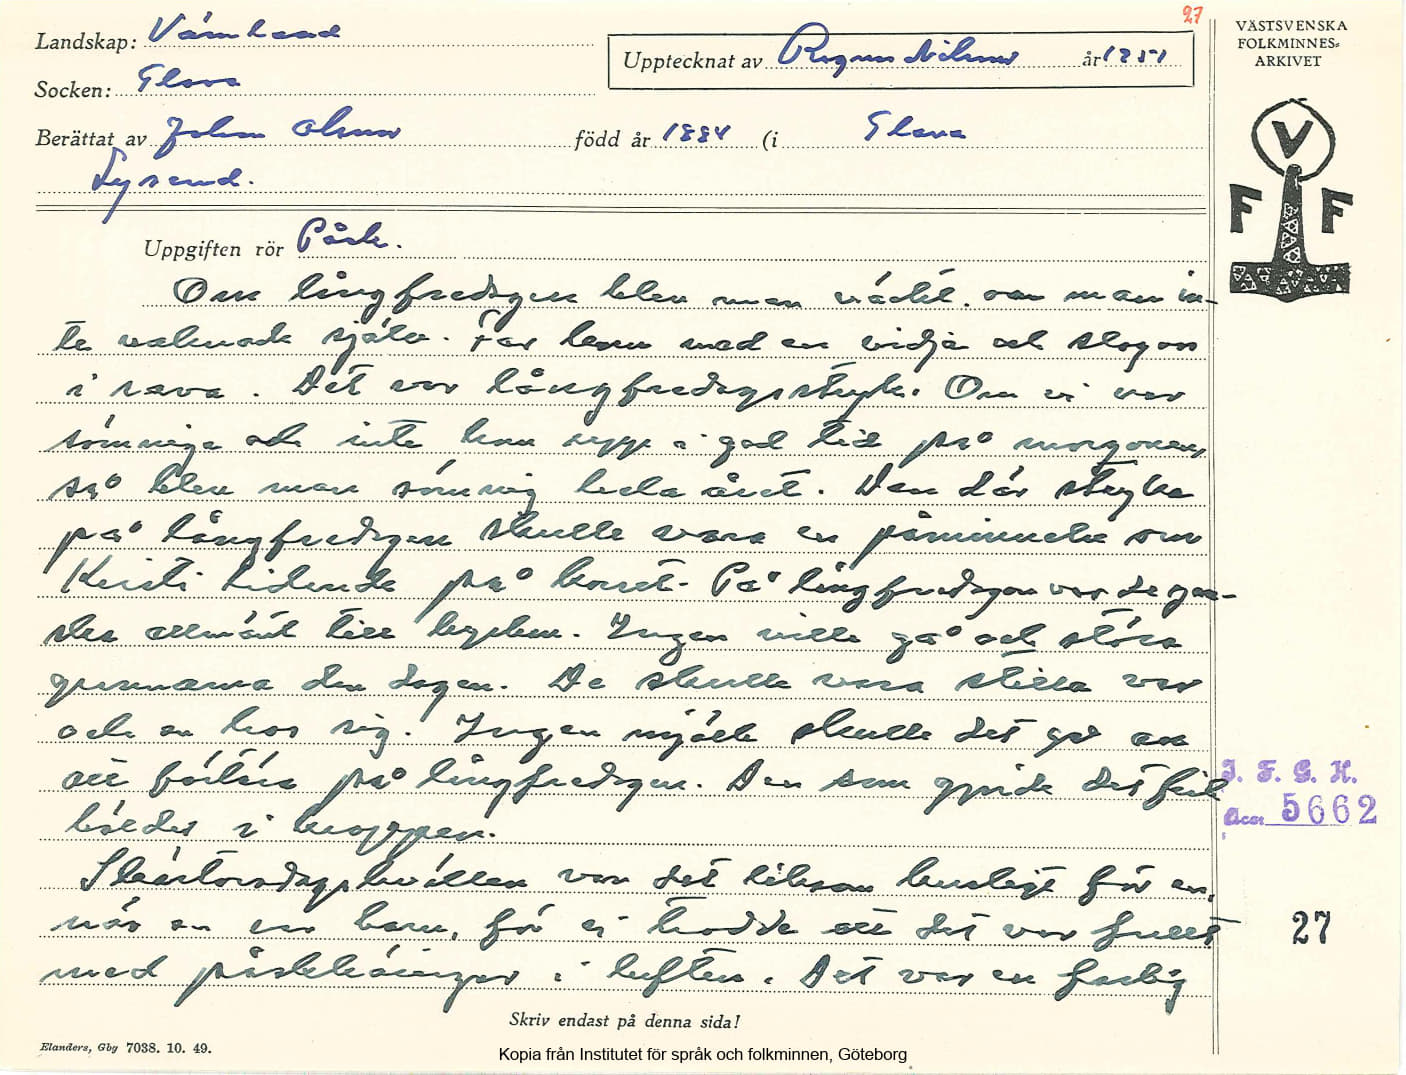 27
Landskap: Värmland
Upptecknat av Ragnar Nilsson år 1951
Socken: Glava
Berättat av Johan Olsson född år 1884 (i Glava
Lysend.
VÄSTSVENSKA
FOLKMINNES-
ARKIVET
V
F F
Uppgiften rör Påsk.
Om långfredagen blev man väckt, om man in-
te vaknade själv. Far kom med en vidja och slog en
i rava. Det var långfredagsstryk. Om vi var
sömniga och inte kom upp i god tid på morgonen,
så blev man sömnig hela året. Den där stryke
på långfredagen skulle vara en påminnelse om
Kristi lidande på korset. På långfredagen var de gan-
ska allmänt till kyrkan. Ingen ville gå och störa
grannarna den dagen. De skulle vara stilla var
och en hos sig. Ingen mjölk skulle det gå an
att förtära på långfredagen. Den som gjorde det fick
bölder i kroppen.
Skärtorsdagskvällen var det liksom kusligt för en,
när en var barn, för vi trodde att det var fullt
med påskkäringar i luften. Det var en farlig
I. F. G. H.
Acc. 5662
27
Skriv endast på denna sida!
Elanders, Gby 7038. 10. 49.
Kopia från Institutet för språk och folkminnen, Göteborg